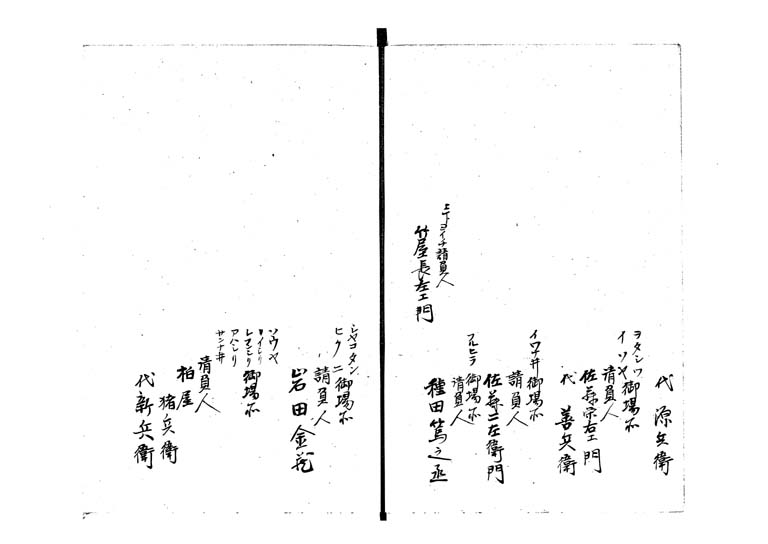 代 源兵衛
ヲタシツ
イソヤ 御場所
請負人
佐藤宗右エ門
代 善兵衛
イワナ井御場所
請負人
佐藤仁左衛門
フルヒラ御場所
請負人
種田篤之丞
上下ヨイチ請負人
竹屋長左エ門
シヤコタン
ヒクニ御場所
請負人
岩田金蔵
ソウヤ
リイシリ
レフンシリ 御場所
請負人
柏屋
猪兵衛
代新兵衛